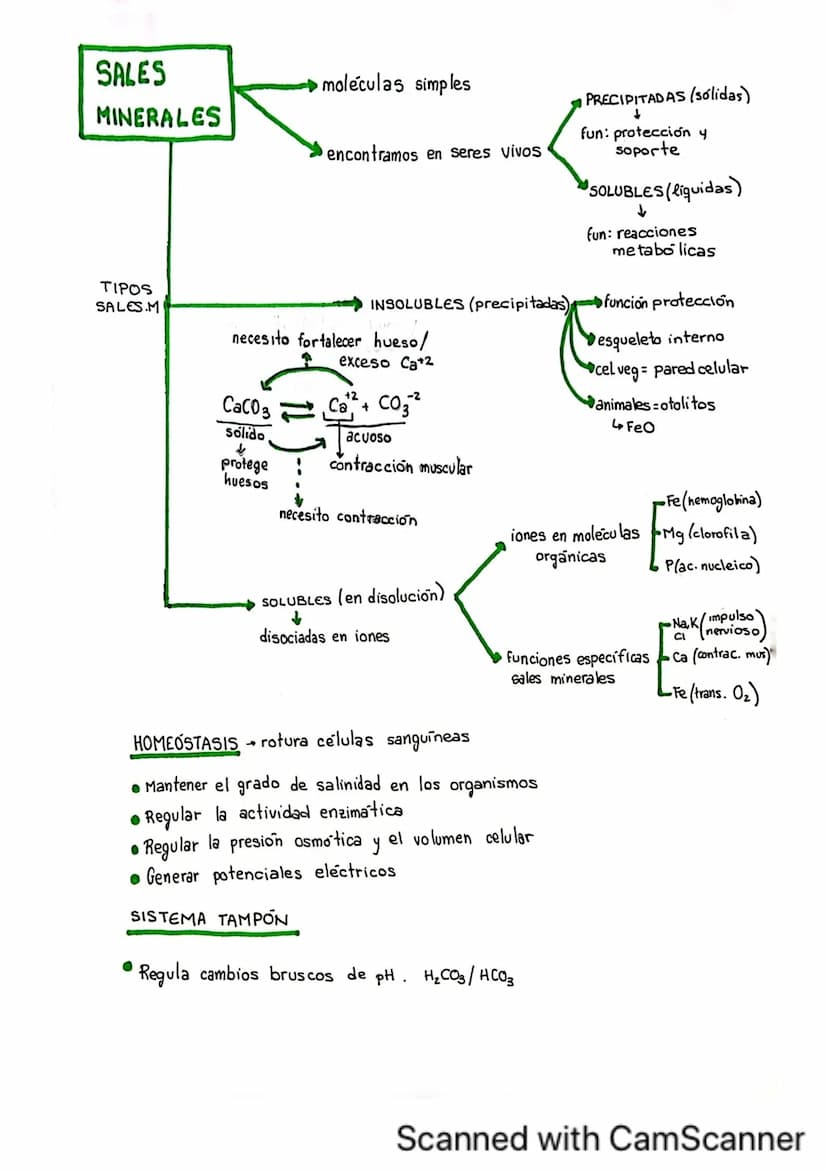 SALES
MINERALES
moléculas simples
encontramos en seres vivos
PRECIPITADAS (sólidas)
↓
fun: protección y
soporte
SOLUBLES (líquidas)
↓
fun: reacciones
metabólicas
TIPOS
SALES.M
INSOLUBLES (precipitadas)
función protección
esqueleto interno
cel veg = pared celular
animales = otolitos
↳ FeO
necesito fortalecer hueso/
exceso Ca+2
CaCO3 ⇌ Ca+2 + CO3-2
sólido
acuoso
protege
huesos
contracción muscular
necesito contracción
SOLUBLES (en disolución)
↓
disociadas en iones
iones en moléculas
orgánicas
Fe (hemoglobina)
Mg (clorofila)
P (ac. nucleico)
funciones específicas
sales minerales
Na, K (impulso
Cl nervioso)
Ca (contrac. mus)
Fe (trans. O2)
HOMEÓSTASIS → rotura células sanguíneas
• Mantener el grado de salinidad en los organismos
• Regular la actividad enzimática
• Regular la presión osmótica y el volumen celular
• Generar potenciales eléctricos
SISTEMA TAMPÓN
• Regula cambios bruscos de pH. H2CO3/HCO3
Scanned with CamScanner